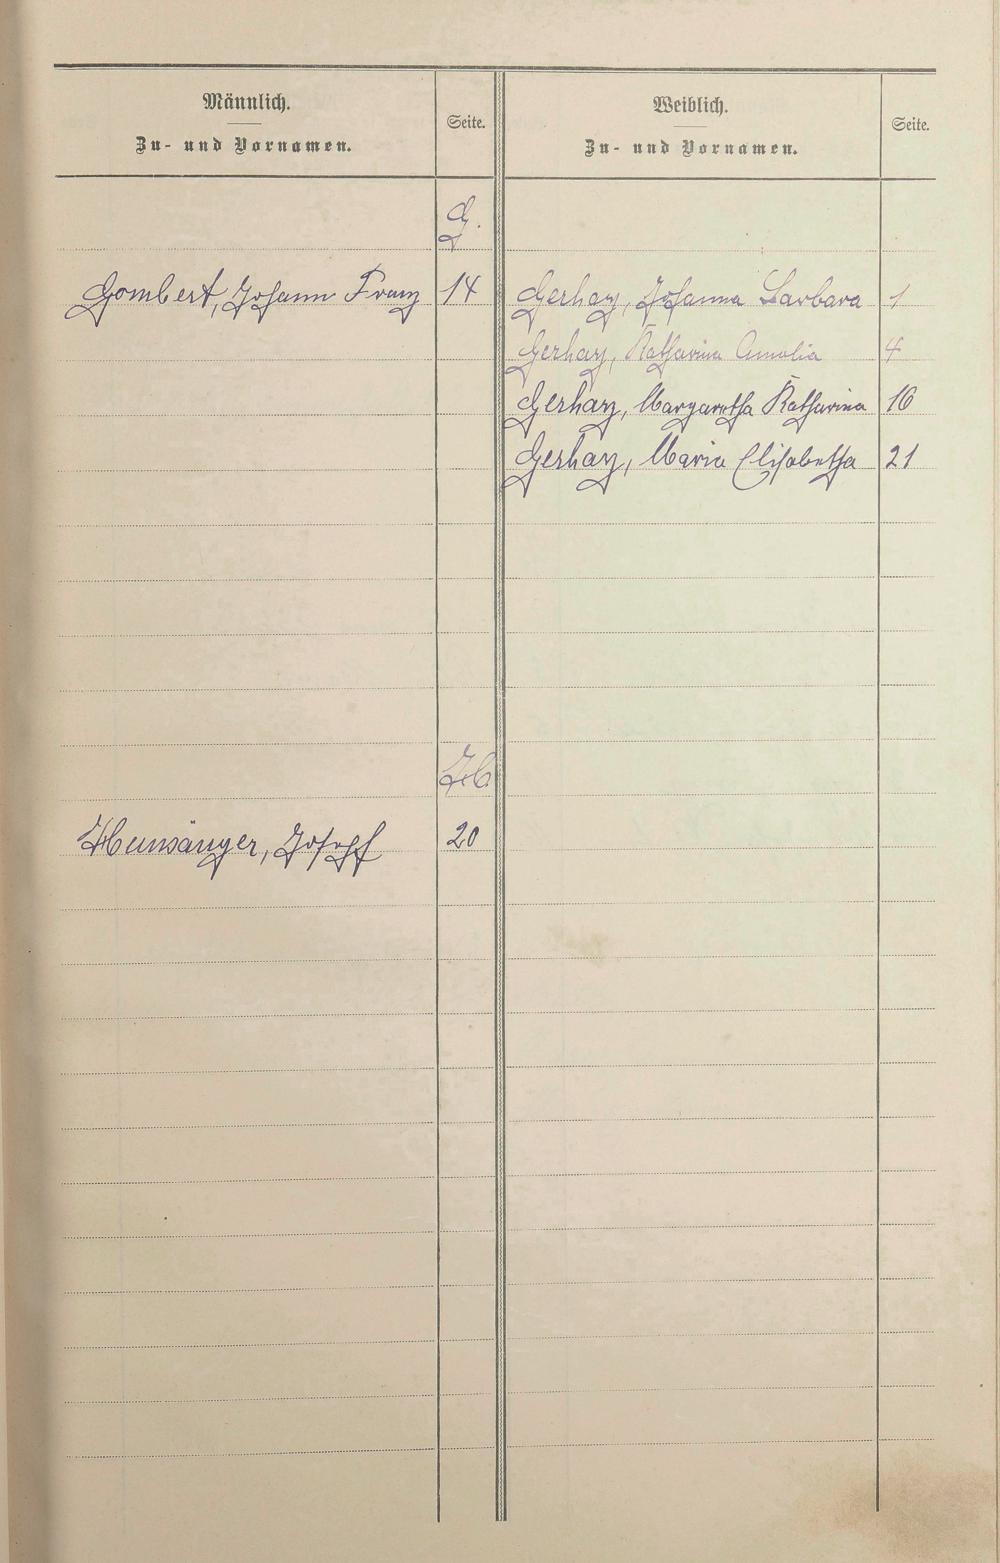 Männlich.
Zu- und Vornamen.
Seite.
Weiblich.
Zu- und Vornamen.
Seite.
G.
Gombert, Johann Franz 14
Gerharz, Johanna Barbara 1
Gerharz, Katharina Amalia 4
Gerharz, Margaretha Katharina 16
Gerharz, Maria Elisabetha 21
H
Hunsänger, Joseph 20